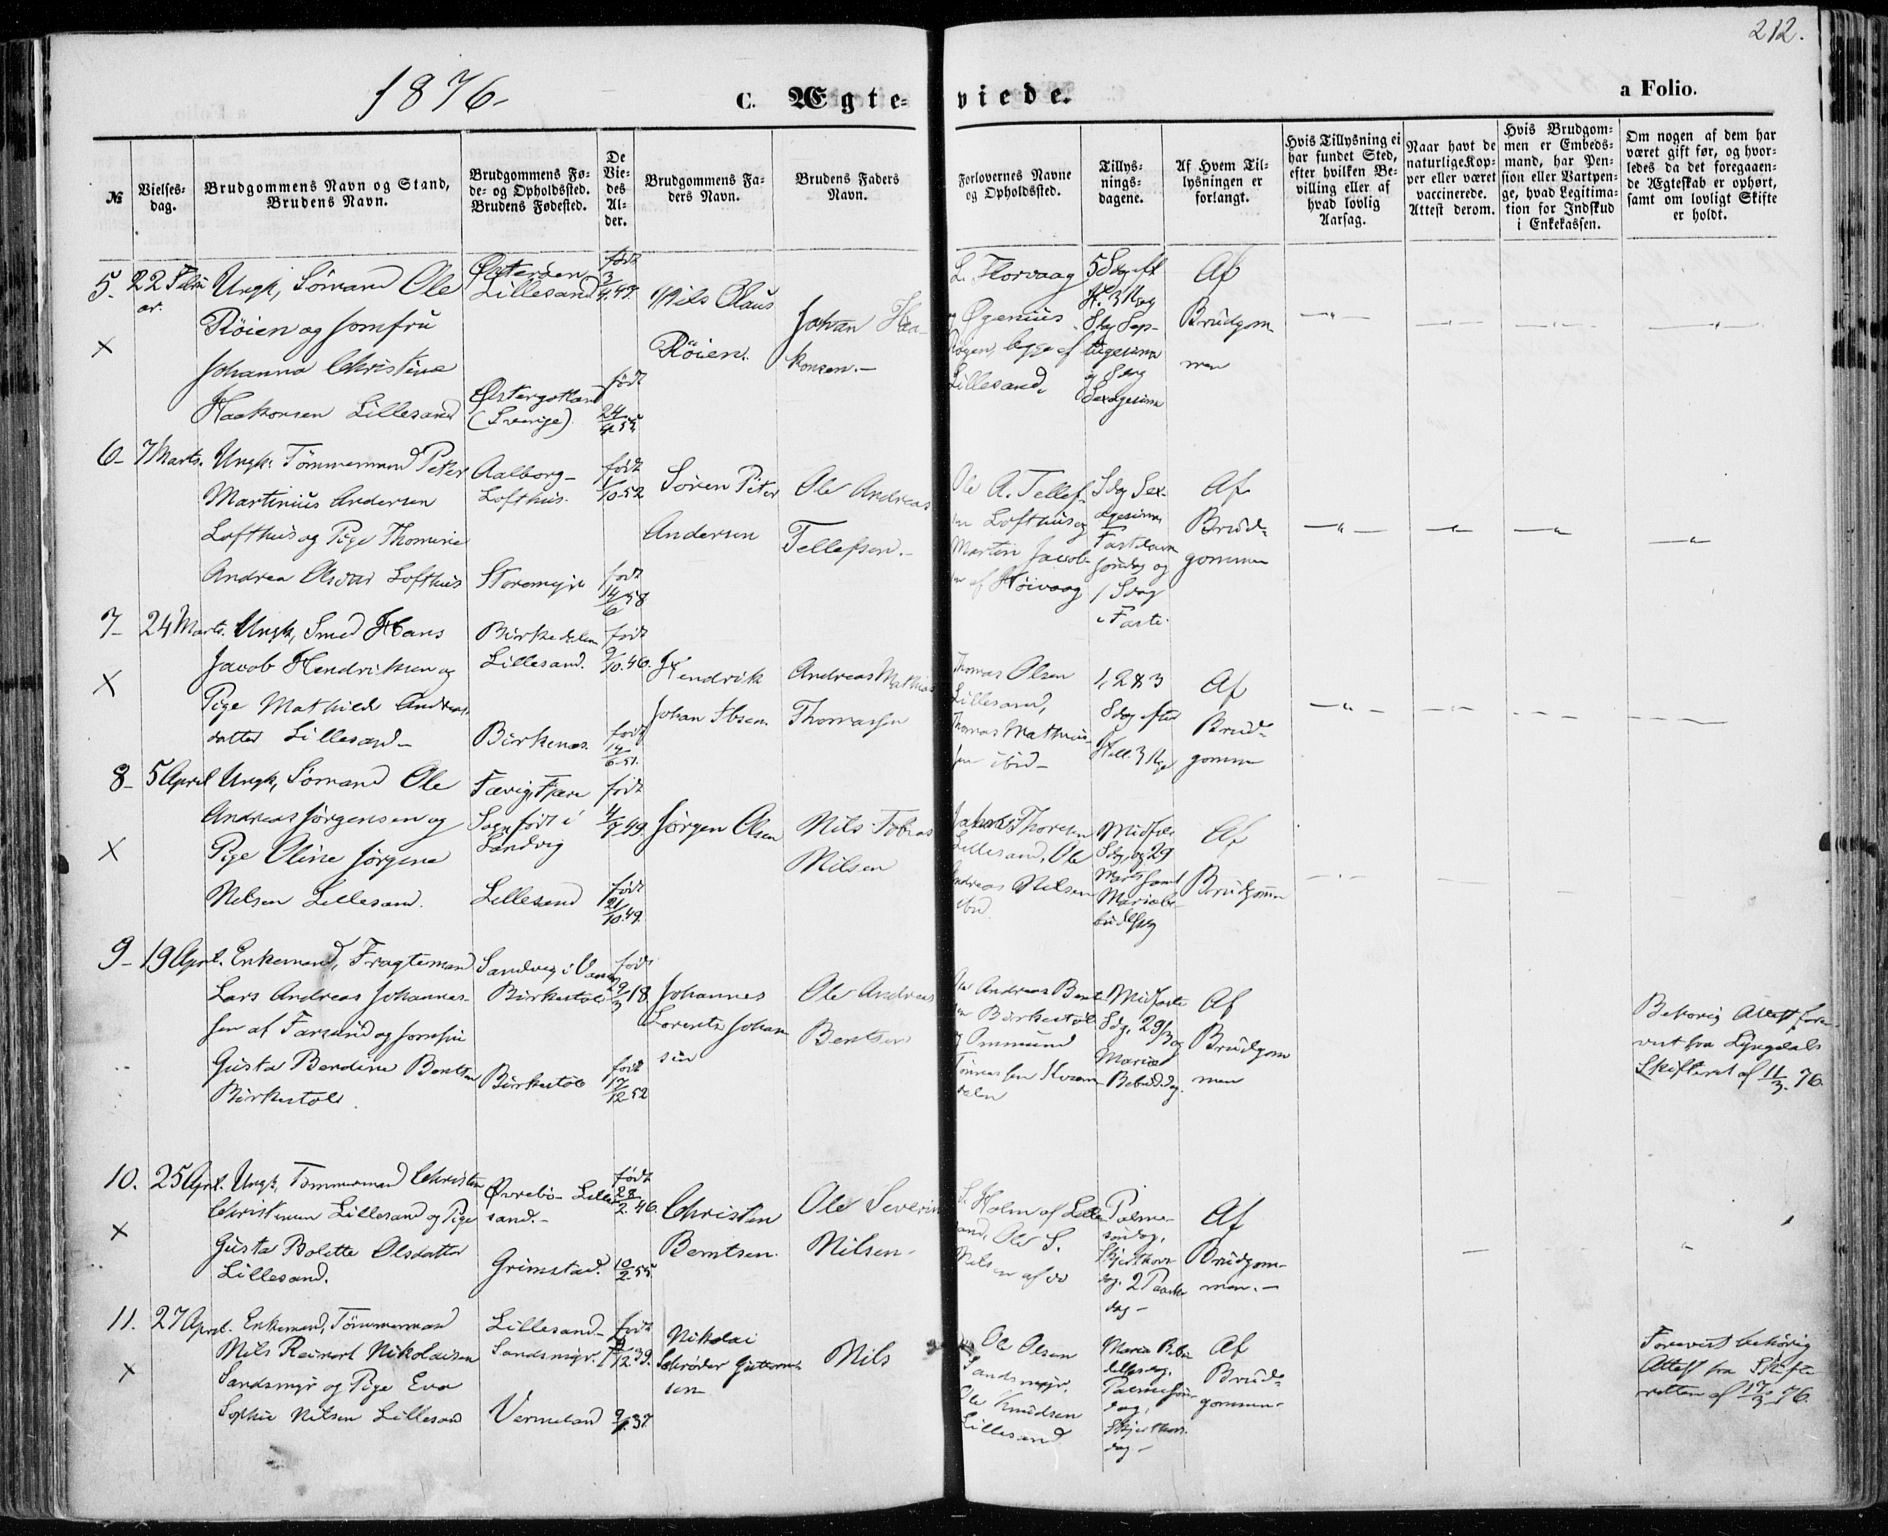 212.
1876-
C. Ægte-
viede.
a Folio.
№
Vielses-
dag.
Brudgommens Navn og Stand,
Brudens Navn.
Brudgommens Fø-
de- og Opholdssted.
Brudens Fødested.
De
Vie-
des
Al-
der.
Brudgommens Fa-
ders Navn.
Brudens Faders
Navn.
Forlovernes Navne
og Opholdssted.
Tillys-
nings-
dagene.
Af Hvem Til-
lysningen er
forlangt.
Hvis Tillysning ei
har fundet Sted,
efter hvilken Be-
villing eller af
hvad lovlig
Aarsag.
Naar havt de
naturlige Kop-
per eller været
vaccinerede.
Attest derom.
Hvis Brudgom-
men er Embeds-
mand, har Pen-
sion eller Vartpen-
ge, hvad Legitima-
tion for Indskud
i Enkekassen.
Om nogen af dem har
været gift før, og hvor-
ledes da det foregaaen-
de Ægteskab er ophørt,
samt om lovligt Skifte
er holdt.
5.
22 Febru
ar.
X
Ungk, Sømand Ole
Røien og Jomfru
Johanna Christine
Haakonsen Lillesand
Østerøen
Lillesand
Østergotland
(Sverige)
født
3/4.49.
født
24/4 55
Nils Olaus
Røien.
Johan Haa-
konsen.-
L. Florvaag
Øgenius
Røgen, begge af
Lillesand.
5 Sdg eft
H. 3 Kg
Sdg Sep-
tugesima
og Sdg
Sexagesima
Af
Brudgom-
men
6-
7 Marts.
Ungk: Tømmermand Peter
Martinius Andersen
Lofthus og Pige Thomine
Andrea Olsdat Lofthus
Aalborg-
Lofthus.
Storemyr
født
1/10-52
født
14/6 58
Søren Peter
Andersen
Ole Andreas
Tellefsen.-
Ole A. Tellef-
sen Lofthus og
Martin Jacob-
sen af Høivaag
Sdg Sex-
agesima
Fastelavn
søndag og
1 Sdag
i Faste.
Af
Brud-
gommen
7-
24 Marts.
X
Ungk, Smed Hans
Jacob Hendriksen og
Pige Mathilde Andreas-
datter Lillesand-
Birkedalen
Lillesand.
Birkenes.
født
9/10.46.
født
14/6-51.
Hendrik
Johan Ibsen.
Andreas Mathias
Thomassen
Thomas Olsen
Lillesand,
Thomas Mathias-
sen ibid-
1, 2 & 3
Sdag efter
Hell. 3 Kge
Af
Brud-
gommen
8-
5 April
X
Ungk, Sømand Ole
Andreas Jørgensen og
Pige Oline Jørgine
Nilsen Lillesand.
Færvig, Fjære
Sogn født i
Sandvig
Lillesand
født
4/7 49.
født
21/10.49.
Jørgen Olsen
Nils Tobias
Nilsen
Thoresen
Lillesand, Ole
Andreas Nilsen
ibid.
Midfaste
Sdg, og 29
Marts samt
Mariæbe-
budelsdg
Af
Brudgommen
9-
19 April.
Enkemand, Fragtemand
Lars Andreas Johannes-
sen af Farsund og Jomfru
Gusta Berdine Bentsen
Birkestøl.
Sandvig i
Birkestøl
Birkestøl
født
29/3 18.
født
17/12 52
Johannes
Lorentz Johan
sen
Ole Andreas
Bentsen
Ole Andreas Bent-
sen Birkestøl
og Ommund
Midfaste
Sdg. 29/3 og
Mariæ
Bebudsdag.
Af
Brudgom
men
Behørig Attest fore-
vist fra Lyngdals
Skifteret af 11/3. 76.
10.
25 April.
X
Ungk, Tømmermand Christen
Christensen Lillesand og Pige
Gusta Bolette Olsdatter
Lillesand.
Øvrebø- Lille-
sand.-
Grimstad.
født
28/2. 46.
10/2.55.
Christen
Berntsen.
Ole Severin
Nilsen-
S. Holm af Lille-
sand, Ole S.
Nilsen af do
Palme-
søndag,
Skjærthors
dag. 2 Paaske
dag-
Af
Brudgom-
men.-
11.
27 April.
X
Enkemand, Tømmermand
Nils Reinert Nikolaisen
Sandsmyr og Pige Eva
Sophie Nilsen Lillesand
Lillesand-
Sandsmyr.
Vermeland
født
/12 39.
37.
Nikolai
Schrøder Guttorm-
sen
Nils
Ole Olsen
Sandsmyr.
Ole Knudsen
Lillesand
Maria Bebu
delsdag,
Palmesøn-
dag,
Skjærthors-
dag-
Af
Brud-
gommen.
Forevist behørig
Attest fra Skifte
retten af 17/3 76.